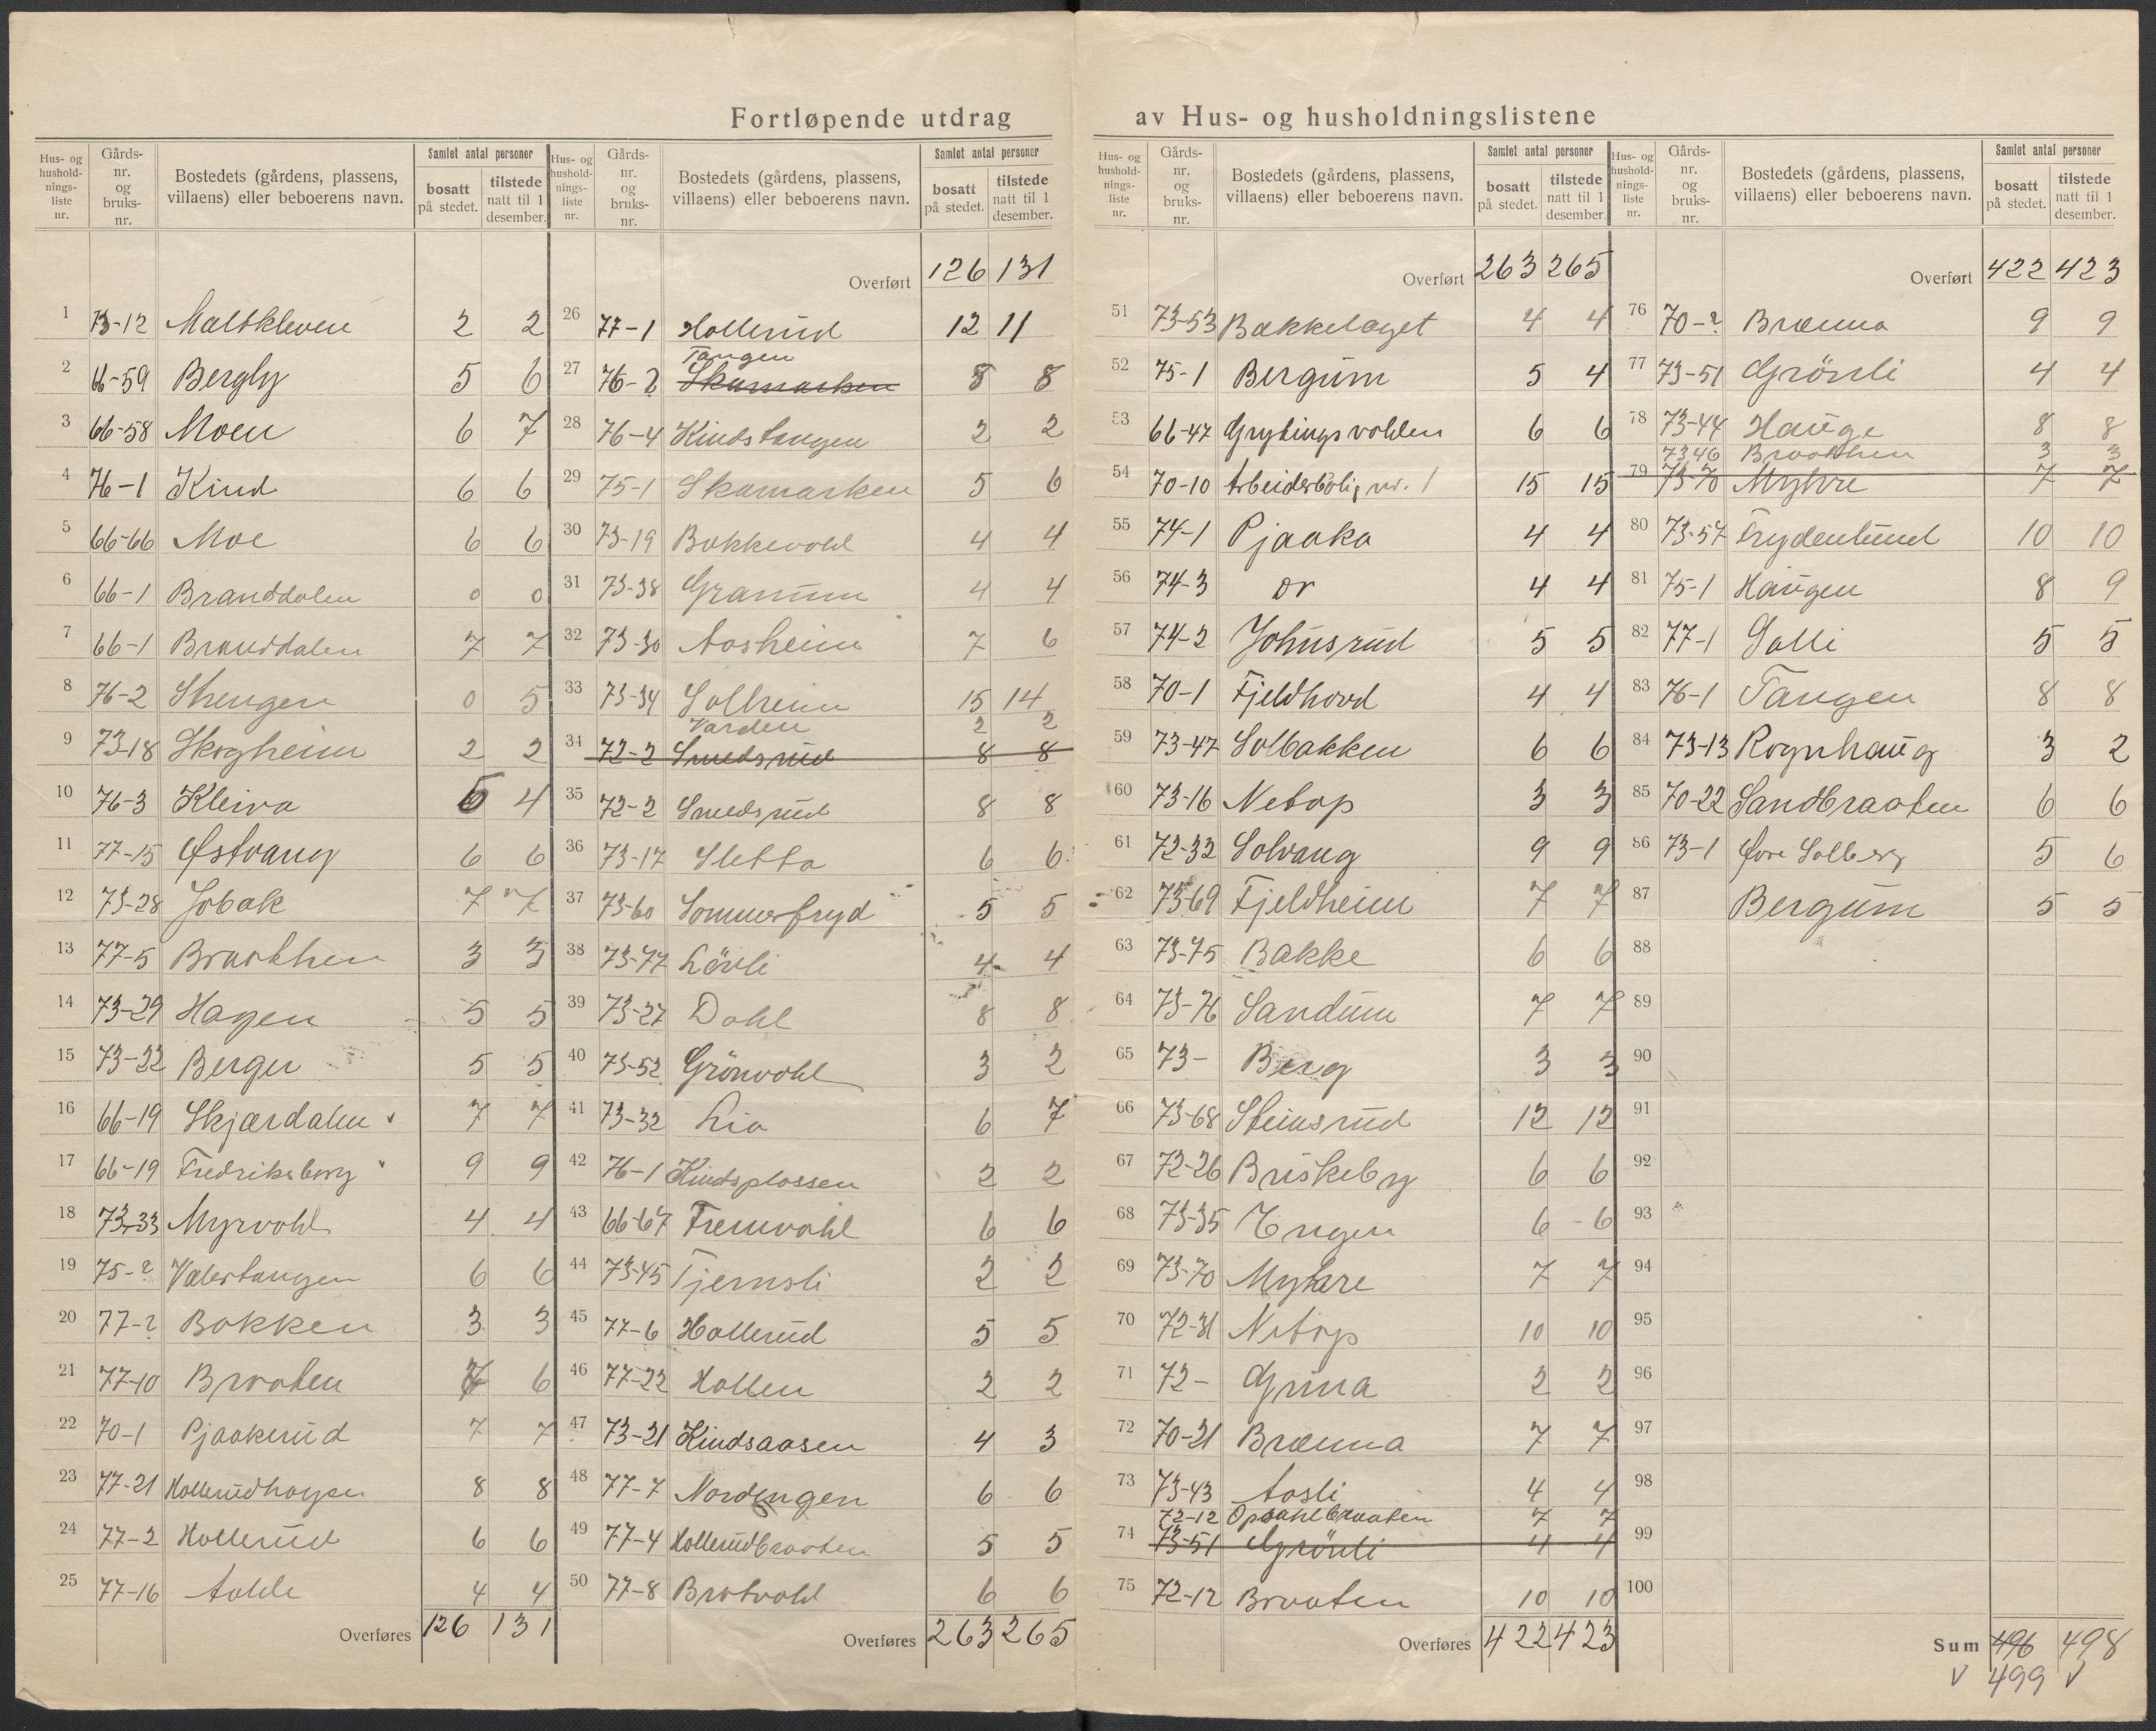 Fortløpende utdrag av Hus- og husholdningslistene
Hus- og hushold-nings-liste nr. Gårds-nr. og bruks-nr. Bostedets (gårdens, plassens, villaens) eller beboerens navn. Samlet antal personer bosatt på stedet. tilstede natt til 1 desember.
1 73-12 Maltkleven 2 2
2 66-59 Bergly 5 6
3 66-58 Moen 6 7
4 76-1 Kind 6 6
5 66-66 Moe 6 6
6 66-1 Branddalen 0 0
7 66-1 Branddalen 7 7
8 76-2 Strengen 0 5
9 73-18 Skogheim 2 2
10 76-3 Kleiva 5 4
11 77-15 Østvang 6 6
12 73-28 Jobak 7 7
13 77-5 Braathen 3 3
14 73-29 Hagen 5 5
15 73-22 Berger 5 5
16 66-19 Skjærdalen 7 7
17 66-19 Fredriksberg 9 9
18 73-33 Myrvold 4 4
19 75-? Valertangen 6 6
20 77-? Bakken 3 3
21 77-10 Braaten 7 6
22 70-1 Pjaakerud 7 7
23 77-21 Hollerudhagen 8 8
24 77-2 Hollerud 6 6
25 77-16 4 4
Overføres 126 131
Hus- og hushold-nings-liste nr. Gårds-nr. og bruks-nr. Bostedets (gårdens, plassens, villaens) eller beboerens navn. Samlet antal personer bosatt på stedet. tilstede natt til 1 desember.
Overført 126 131
26 77-1 Hollerud 12 11
Tangen
27 76-2 Skamarken 8 8
28 76-4 Kindstangen 2 2
29 75-1 Skamarken 5 6
30 73-19 Bakkevold 4 4
31 73-38 Granum 4 4
32 73-30 Aasheim 7 6
33 73-34 Solheim 15 14
Varden 2 2
34 72-2 Smedsrud 8 8
35 72-2 Smedsrud 8 8
36 73-17 Sletta 6 6
37 73-60 Sommerfryd 5 5
38 73-77 Lövli 4 4
39 73-27 Dahl 8 8
40 73-52 Grönvold 3 2
41 73-32 Lia 6 7
42 76-1 Kindsplassen 2 2
43 66-67 Fremvold 6 6
44 73-45 Tjernsli 2 2
45 77-6 Hollerud 5 5
46 77-22 Hollen 2 2
47 73-21 Kindsaasen 4 3
48 77-7 Nordengen 6 6
49 77-4 Hollerudbraaten 5 5
50 77-8 Brotvold 6 6
Overføres 263 265
Hus- og hushold-nings-liste nr. Gårds-nr. og bruks-nr. Bostedets (gårdens, plassens, villaens) eller beboerens navn. Samlet antal personer bosatt på stedet. tilstede natt til 1 desember.
Overført 263 265
51 73-53 Bakkelaget 4 4
52 75-1 Bergum 5 4
53 66-47 Grytingsvolden 6 6
54 70-10 Arbeiderbolig nr. 1 15 15
55 74-1 Pjaaka 4 4
56 74-3 4 4
57 74-2 Johnsrud 5 5
58 70-1 Fjeldhovd 4 4
59 73-47 Solbakken 6 6
60 73-16 Netop 3 3
61 72-32 Solvang 9 9
62 73-69 Fjeldheim 7 7
63 73-75 Bakke 6 6
64 73-76 Sandum 7 7
65 73- Berg 3 3
66 73-68 Steinsrud 12 12
67 72-26 Briskeberg 6 6
68 73-35 Engen 6 6
69 73-70 Myhre 7 7
70 72-31 Netop 10 10
71 72- Gruna 2 2
72 70-21 Brænna 7 7
73 73-43 Aasli 4 4
72-12 Opsahlbraaten 7 7
74 73-51 Grönli 4 4
75 72-12 Braaten 10 10
Overføres 422 423
Hus- og hushold-nings-liste nr. Gårds-nr. og bruks-nr. Bostedets (gårdens, plassens, villaens) eller beboerens navn. Samlet antal personer bosatt på stedet. tilstede natt til 1 desember.
Overført 422 423
76 70-? Brænna 9 9
77 73-51 Grönli 4 4
78 73-44 Hauge 8 8
73 46 Braathen 3 3
79 73-70 Myhre 7 7
80 73-57 Frydenlund 10 10
81 75-1 Haugen 8 9
82 77-1 Solli 5 5
83 76-1 Tangen 8 8
84 73-13 Rognhaug 3 2
85 70-22 Sandbraaten 6 6
86 73-1 Øvre Solberg 5 6
87 Bergum 5 5
88
89
90
91
92
93
94
95
96
97
98
99
100
Sum 496 498
√ 499 √